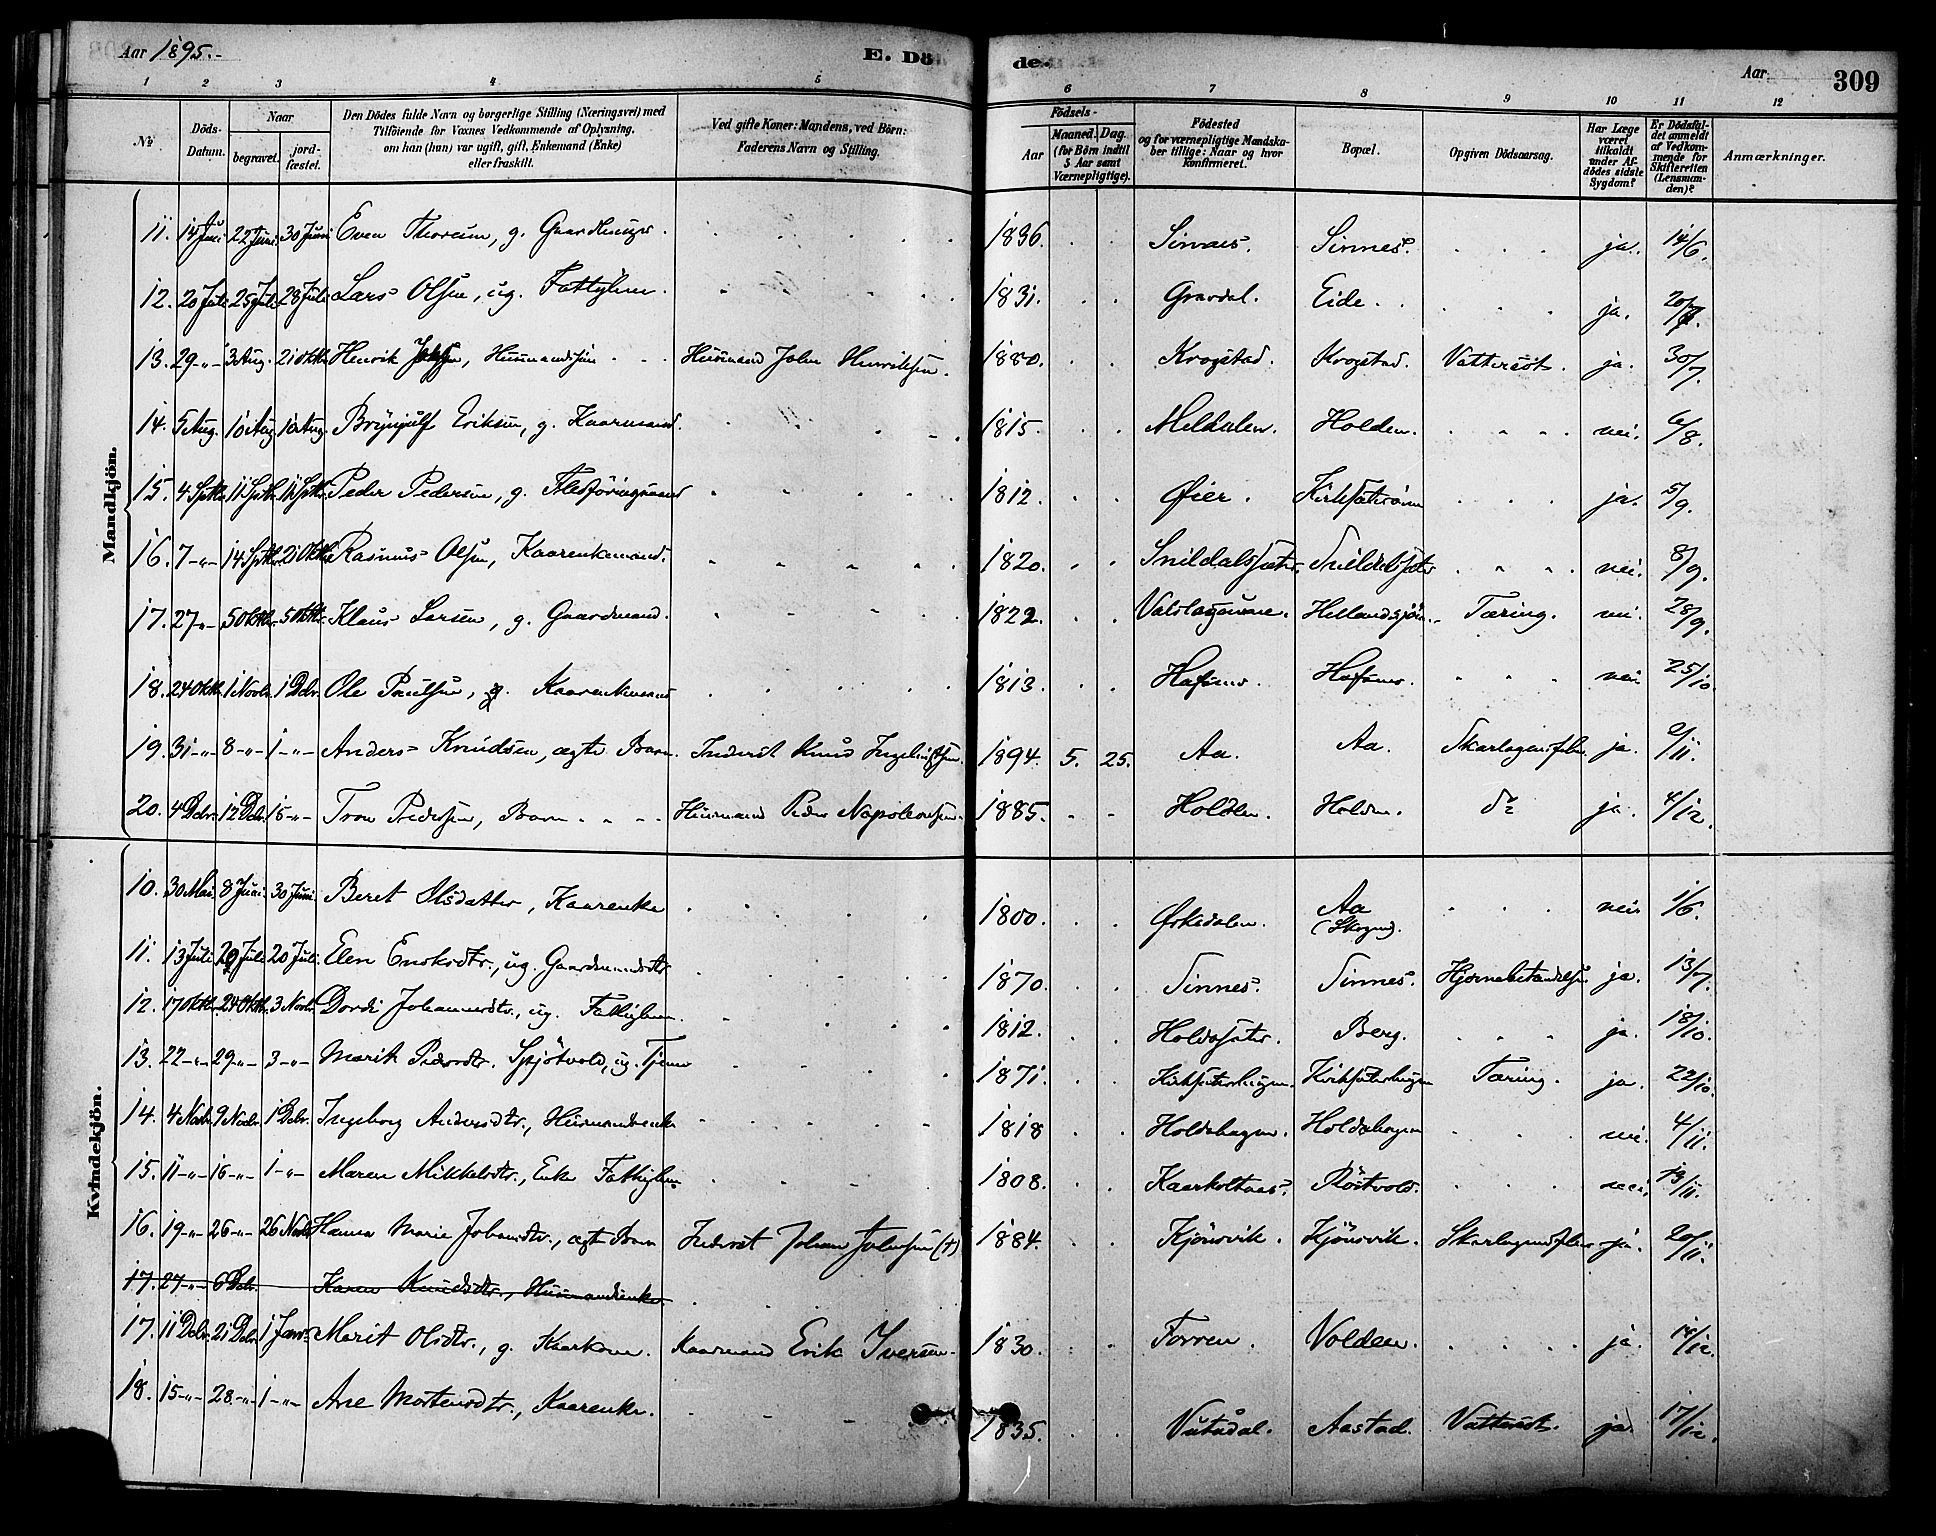 Aar 1895.- E. Döde. Aar 309
1 2 3 4 5 6 7 8 9 10 11 12
No. Döds-Datum. Naar begravet. jordfæstet. Den Dödes fulde Navn og borgerlige Stilling (Næringsvei) med Tilföiende for Voxnes Vedkommende af Oplysning, om han (hun) var ugift, gift, Enkemand (Enke) eller fraskilt. Ved gifte Koner: Mandens, ved Börn: Faderens Navn og Stilling. Födsels- Aar Maaned. Dag. (for Börn indtil 5 Aar samt Værnepligtige). Födested og for værnepligtige Mandskaber tillige: Naar og hvor Konfirmeret. Bopæl. Opgiven Dödsaarsag. Har Læge været tilkaldt under Afdödes sidste Sygdom? Er Dödsfaldet anmeldt af Vedkommende for Skifteretten (Lensmanden)? Anmærkninger.
Mandkjön.
11. 14 Juni 22 Juni 30 Juni Even g. 1836. Sinnes. Sinnes. ja. 14/6.
12. 20 Juli 25 Juli 28 Juli Lars Olsen, ug. Fattiglem. 1831. Gravdal. Eide. ja. 20/7.
13. 29 -"- 3 Aug. 21 Oktbr Henrik Johnsen, Husmandssön Husmand John Henriksen. 1880. Krogstad. Krogstad. Vattersot. ja. 30/7.
14. 5 Aug. 10 Aug. 10 Aug. Brynjulf Eriksen, g. Kaarmand. 1815. Meldalen. Holden. nei. 6/8.
15. 4 Sptbr 11 Sptbr 11 Sptbr Peder Pedersen, g. 1812. Øier. ja. 5/9.
16. 7 -"- 14 Sptbr 21 Oktbr Rasmus Olsen, Kaarenkemand. 1820. Snildalssæter. Snildalssæter nei. 8/9.
17. 27 -"- 5 Oktbr. 5 Oktbr. Klaus Larsen, g. Gaardmand. 1822. Hellandsjöen. Tæring. nei. 28/9.
18. 24 Oktbr. 1 Novbr. 1 Dcbr. Ole Paulsen, g. Kaarenkemand 1813. nei. 25/10.
19. 31 -"- 8 -"- 1 -"- Anders Knudsen, ægte Barn. Inderst Knud Ingebrigtsen. 1894. 5. 25. Aa. Aa. Skarlagensfeber. ja. 2/11.
20. 4 Dcbr. 12 Dcbr. 15 -"- Tron Pedersen, Barn Husmand Peder Napoleonsen. 1885. Holden. Holden. do ja. 4/12.
Kvindekjön.
10. 30 Mai 8 Juni 30 Juni. Beret Olsdatter, Kaarenke 1800. Ørkedalen. Aa nei 1/6.
11. 13 Juli 20 Juli 20 Juli. Elen Enoksdtr., ug. Gaardmandsdtr 1870. Sinnes. Sinnes. Hjernebetændelse ja. 13/7.
12. 17 Oktbr. 24 Oktbr. 3 Novbr. Dordi Johannesdtr., ug. Fattiglem. 1812. Holdasæter. Berg. ja. 18/10.
13. 22 -"- 29 -"- 3 -"- Marit Pedersdtr. Spjötvold, ug. Tjener 1871. Kirksæterhugen. Kirksæterhugen Tæring. ja. 22/10.
14. 4 Novbr. 9 Novbr. 1 Dcbr. Ingeborg Andersdtr., Husmandsenke 1818 Holdahagen. Holdahagen nei. 4/11.
15. 11 -"- 16 -"- 1 -"- Maren Mikkelsdtr., Enke Fattiglem 1808. Röstvold. nei. 13/11.
16. 19 -"- 26 -"- 26 Novbr. Hanna Marie Johansdtr., ægte Barn Inderst Johan Johnsen (+) 1884. Kjönsvik. Kjönsvik. Skarlagensfeber ja. 20/11.
17. 27 -"- 6 Dcbr. Karen Knudsdtr., Husmandsenke.
17. 11 Dcbr. 21 Dcbr. 1 Janr. Marit Olsdtr., g. Kaarkone. Kaarmand Erik Iversen. 1830. Torren Volden. ja. 14/12.
18. 15 -"- 28 -"- 1 -"- Ane Mortensdtr., Kaarenke. 1835. Vutudal. Aastad. Vattersot. ja. 17/12.